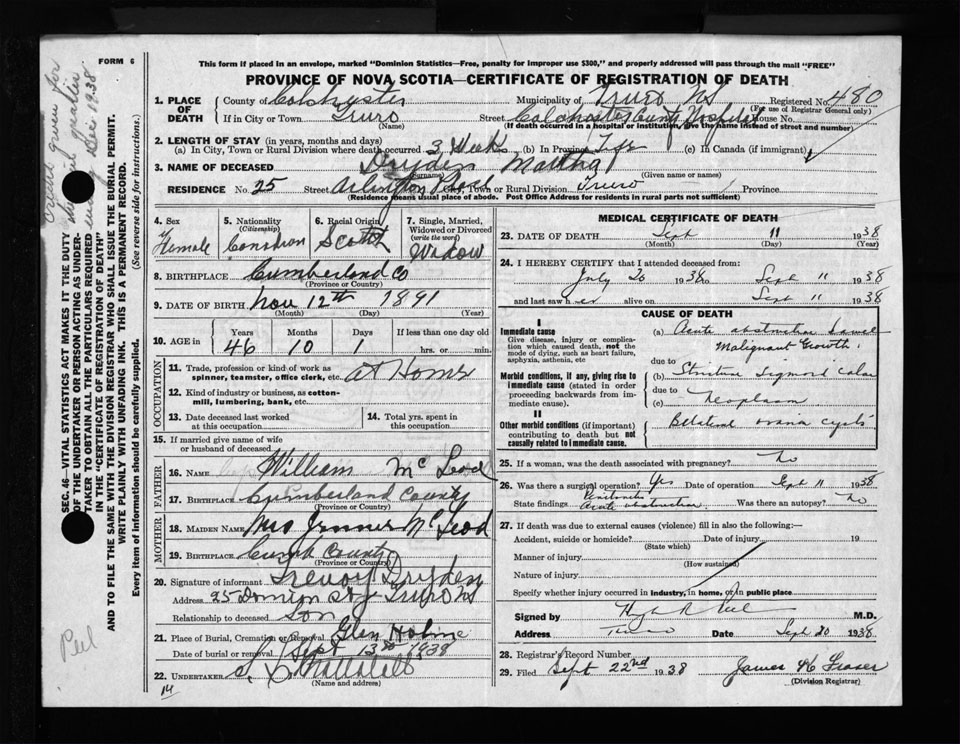 FORM 6
This form if placed in an envelope, marked "Dominion Statistics—Free, penalty for improper use $300," and properly addressed will pass through the mail "FREE"
PROVINCE OF NOVA SCOTIA—CERTIFICATE OF REGISTRATION OF DEATH
1. PLACE OF DEATH
County of Colchester Municipality of Truro NS Registered No. 480
(For use of Registrar General only)
If in City or Town Truro Street Colchester County Hospital House No.
(Name) (If death occurred in a hospital or institution, give the name instead of street and number)
2. LENGTH OF STAY (in years, months and days)
(a) In City, Town or Rural Division where death occurred 3 Weeks (b) In Province Life (c) In Canada (if immigrant)
3. NAME OF DECEASED Dryden Martha
(Surname) (Given name or names)
RESIDENCE No. 25 Street Arlington Place City, Town or Rural Division Truro Province
(Residence means usual place of abode. Post Office Address for residents in rural parts not sufficient)
4. Sex Female
5. Nationality (Citizenship) Canadian
6. Racial Origin Scotch
7. Single, Married, Widowed or Divorced (write the word) Widow
8. BIRTHPLACE Cumberland Co
(Province or Country)
9. DATE OF BIRTH Nov 12th 1891
(Month) (Day) (Year)
10. AGE in
Years Months Days If less than one day old
46 10 1 hrs. or min.
OCCUPATION
11. Trade, profession or kind of work as spinner, teamster, office clerk, etc. At Home
12. Kind of industry or business, as cotton-mill, lumbering, bank, etc.
13. Date deceased last worked at this occupation
14. Total yrs. spent in this occupation
15. If married give name of wife or husband of deceased
FATHER
16. Name William McLeod
17. Birthplace Cumberland County
(Province or Country)
MOTHER
18. Maiden Name Mrs McLeod
19. Birthplace Cumb County
(Province or Country)
20. Signature of informant Trevoy Dryden
Address 25 Dominion St Truro NS
Relationship to deceased Son
21. Place of Burial, Cremation or Removal Glen Holme
Date of burial or removal Sept 13th 1938
22. UNDERTAKER
(Name and address)
14
MEDICAL CERTIFICATE OF DEATH
23. DATE OF DEATH Sept 11 1938
(Month) (Day) (Year)
24. I HEREBY CERTIFY that I attended deceased from:
July 20 1938 to Sept 11 1938
and last saw her alive on Sept 11 1938
CAUSE OF DEATH
I
Immediate cause
Give disease, injury or complication which caused death, not the mode of dying, such as heart failure, asphyxia, asthenia, etc
(a) Acute obstruction bowel
Malignant Growth.
due to
Morbid conditions, if any, giving rise to immediate cause (stated in order proceeding backwards from immediate cause).
(b) Stricture Sigmoid colon
due to
(c) Neoplasm
II
Other morbid conditions (if important) contributing to death but not causally related to immediate cause.
Bilateral ovarian cysts
25. If a woman, was the death associated with pregnancy? No
26. Was there a surgical operation? Yes Date of operation Sept 11 1938
State findings Peritonitis Acute obstruction Was there an autopsy? No
27. If death was due to external causes (violence) fill in also the following:—
Accident, suicide or homicide? Date of injury 19
(State which)
Manner of injury
(How sustained)
Nature of injury
Specify whether injury occurred in industry, in home, or in public place
Signed by Hugh R Peel M.D.
Address Truro Date Sept 20 1938
28. Registrar's Record Number
29. Filed Sept 22nd 1938 James K Fraser
(Division Registrar)
SEC. 46—VITAL STATISTICS ACT MAKES IT THE DUTY
OF THE UNDERTAKER OR PERSON ACTING AS UNDER-
TAKER TO OBTAIN ALL THE PARTICULARS REQUIRED
IN THE "CERTIFICATE OF REGISTRATION OF DEATH"
AND TO FILE THE SAME WITH THE DIVISION REGISTRAR WHO SHALL ISSUE THE BURIAL PERMIT.
WRITE PLAINLY WITH UNFADING INK. THIS IS A PERMANENT RECORD.
Every item of information should be carefully supplied. (See reverse side for instructions.)
Credit given for
quarter
ending Dec. 1938
Peel